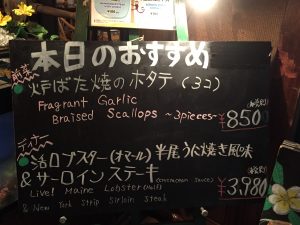 本日のおすすめ
前菜
炉ばた焼のホタテ (3コ)
Fragrant Garlic
Braised Scallops ~3pieces~
(税別)
¥850
ディナー
活ロブスター(オマール)半尾うに焼き風味
& サーロインステーキ
Live! Maine Lobster (Half)
& New York Strip Sirloin Steak
¥3,980